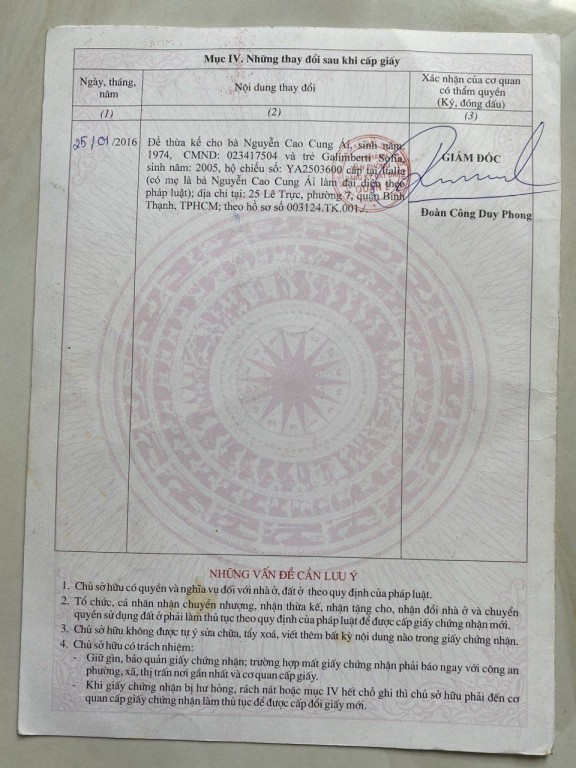 Mục IV. Những thay đổi sau khi cấp giấy
Ngày, tháng, năm
Nội dung thay đổi
Xác nhận của cơ quan có thẩm quyền (Ký, đóng dấu)
(1)
(2)
(3)
25/01/2016
Để thừa kế cho bà Nguyễn Cao Cung Ái, sinh năm:
1974, CMND: 023417504 và trẻ Galimberti Sofia,
sinh năm: 2005, hộ chiếu số: YA2503600 cấp tại Italia
(có mẹ là bà Nguyễn Cao Cung Ái làm đại diện theo
pháp luật); địa chỉ tại: 25 Lê Trực, phường 7, quận Bình
Thạnh, TPHCM; theo hồ sơ số 003124.TK.001./.
GIÁM ĐỐC
Đoàn Công Duy Phong
NHỮNG VẤN ĐỀ CẦN LƯU Ý
1. Chủ sở hữu có quyền và nghĩa vụ đối với nhà ở, đất ở theo quy định của pháp luật.
2. Tổ chức, cá nhân nhận chuyển nhượng, nhận thừa kế, nhận tặng cho, nhận đổi nhà ở và chuyển
quyền sử dụng đất ở phải làm thủ tục theo quy định của pháp luật để được cấp giấy chứng nhận mới.
3. Chủ sở hữu không được tự ý sửa chữa, tẩy xoá, viết thêm bất kỳ nội dung nào trong giấy chứng nhận.
4. Chủ sở hữu có trách nhiệm:
- Giữ gìn, bảo quản giấy chứng nhận; trường hợp mất giấy chứng nhận phải báo ngay với công an
phường, xã, thị trấn nơi gần nhất và cơ quan cấp giấy.
- Khi giấy chứng nhận bị hư hỏng, rách nát hoặc mục IV hết chỗ ghi thì chủ sở hữu phải đến cơ
quan cấp giấy chứng nhận làm thủ tục để được cấp đổi giấy mới.